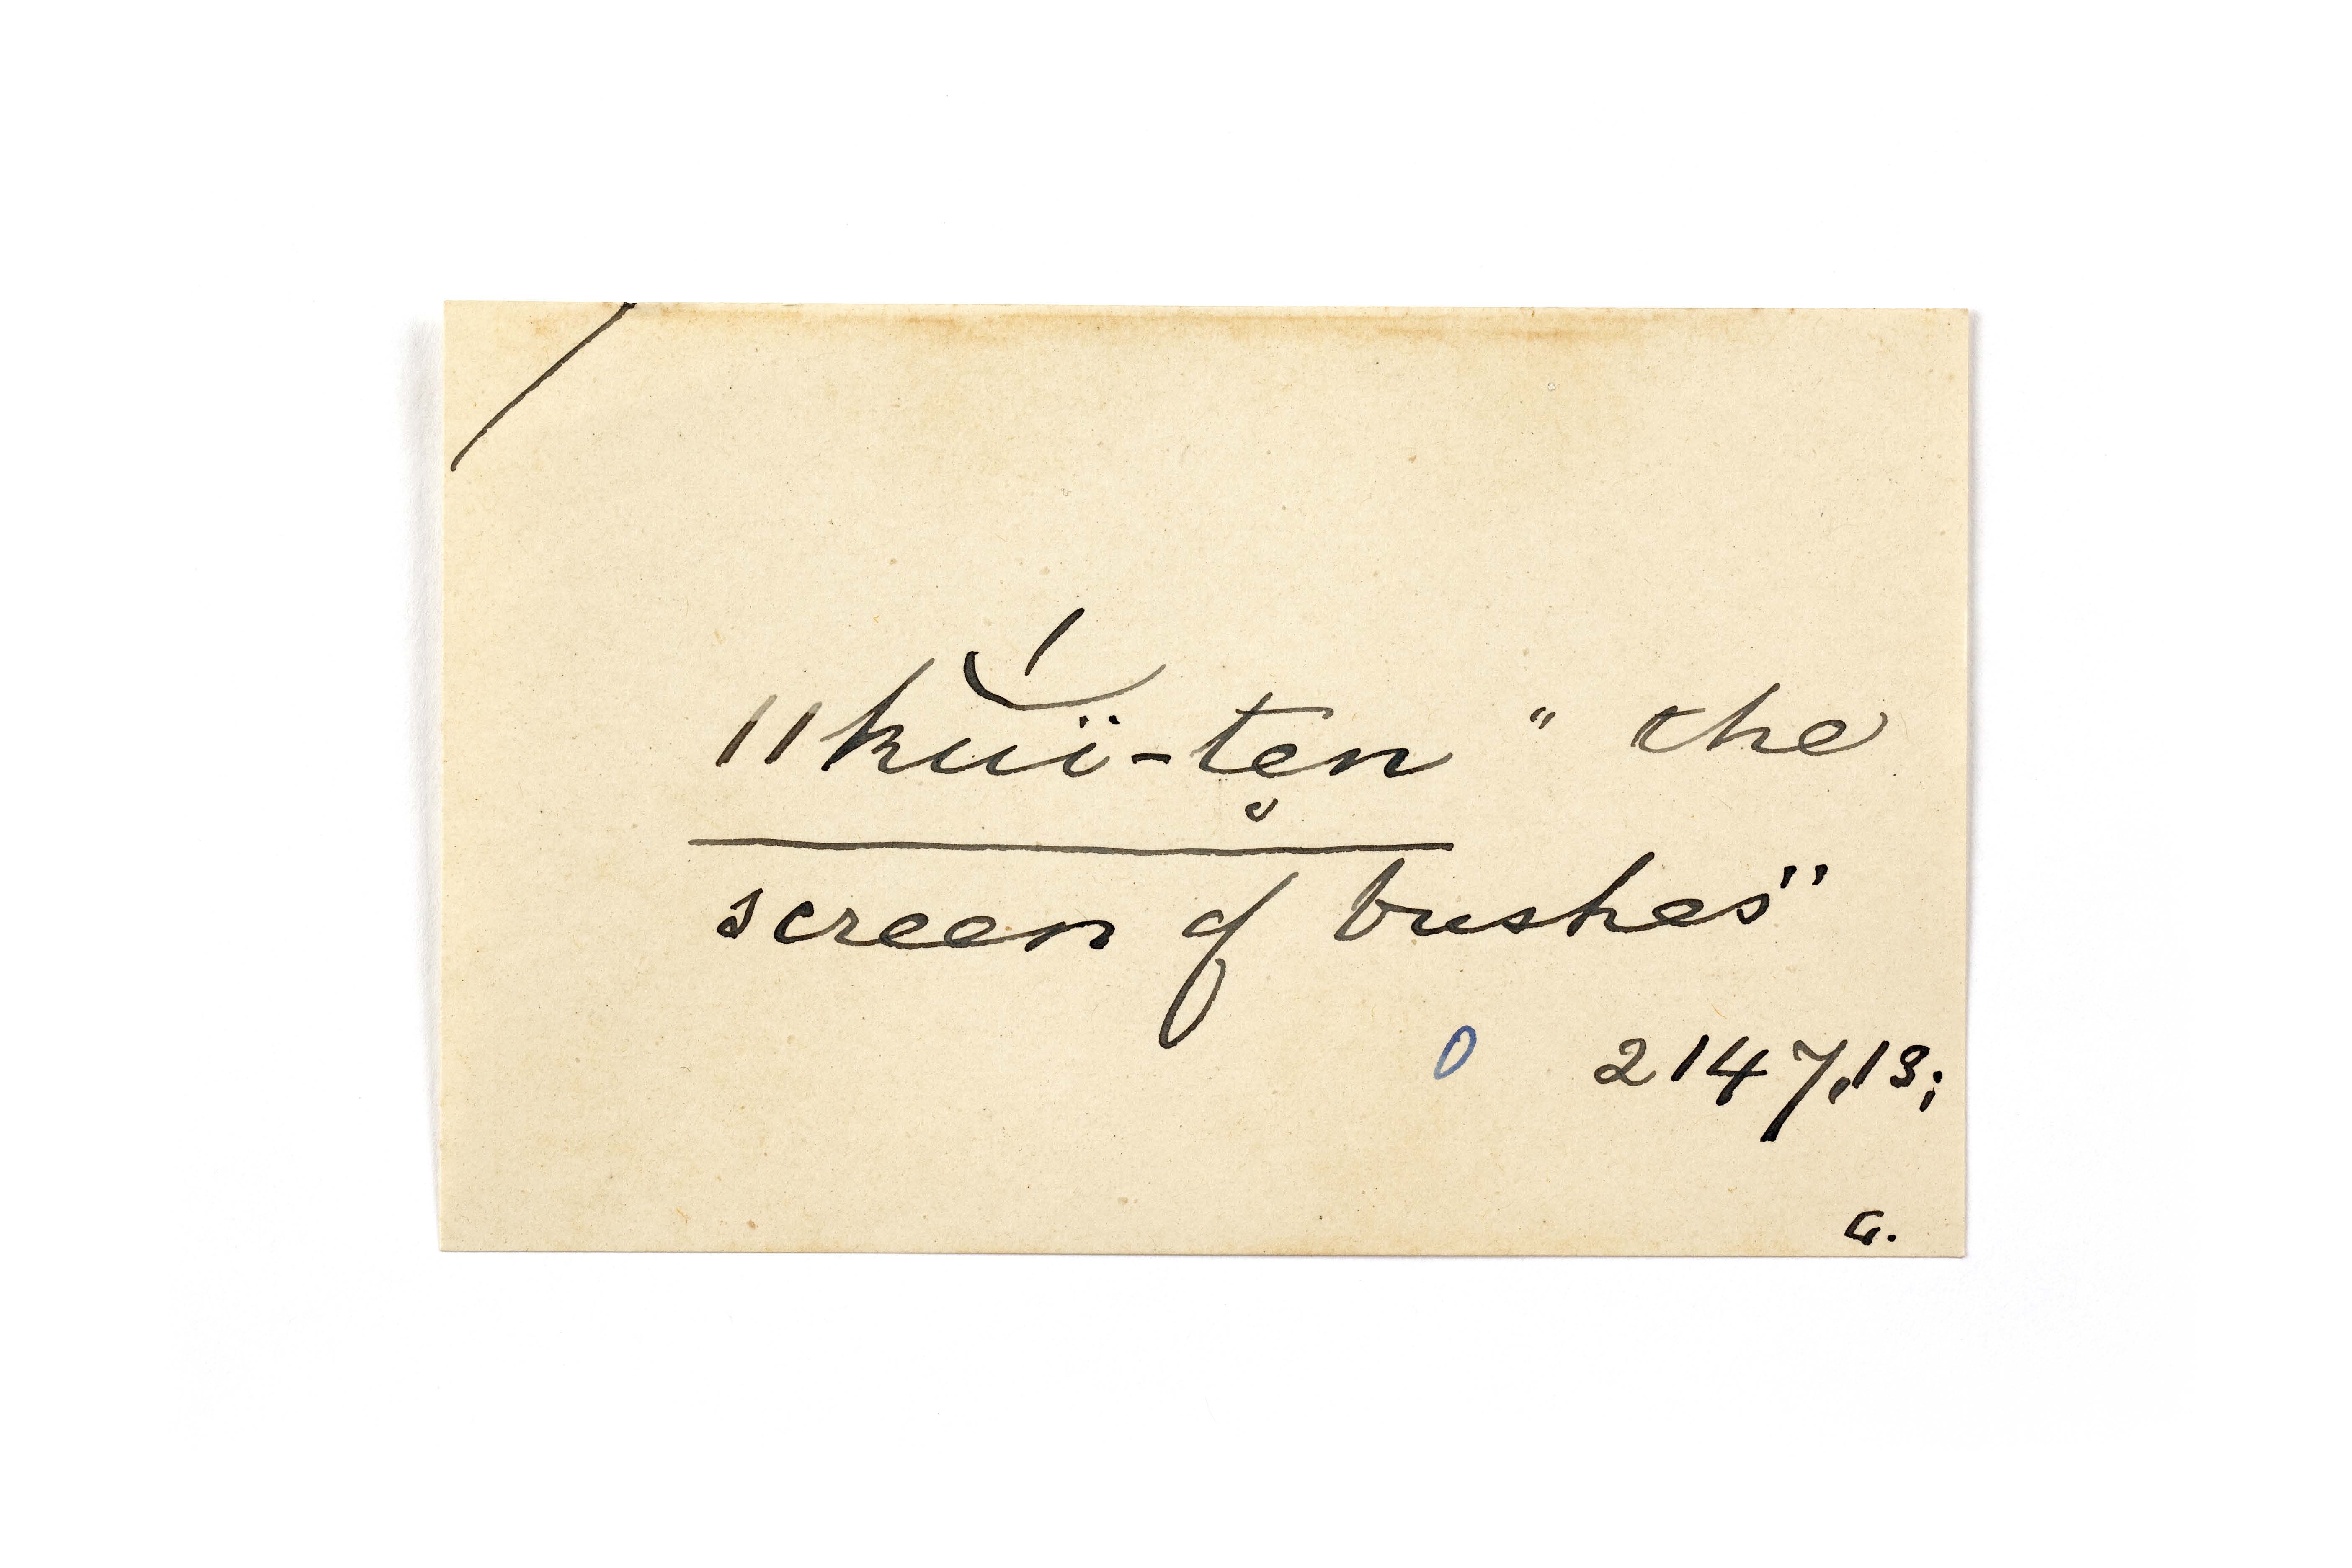 ǁkŭ́ï-ten̥ " the
screen of bushes"
0 2147,13;
G.